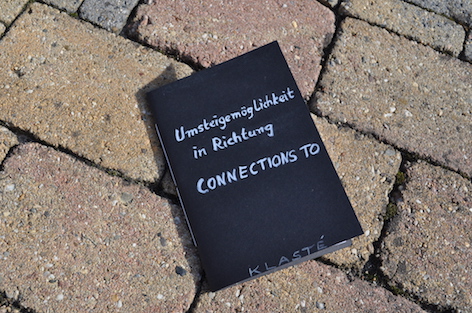 Umsteigemöglichkeit
in Richtung
CONNECTIONS TO
KLASTÉ